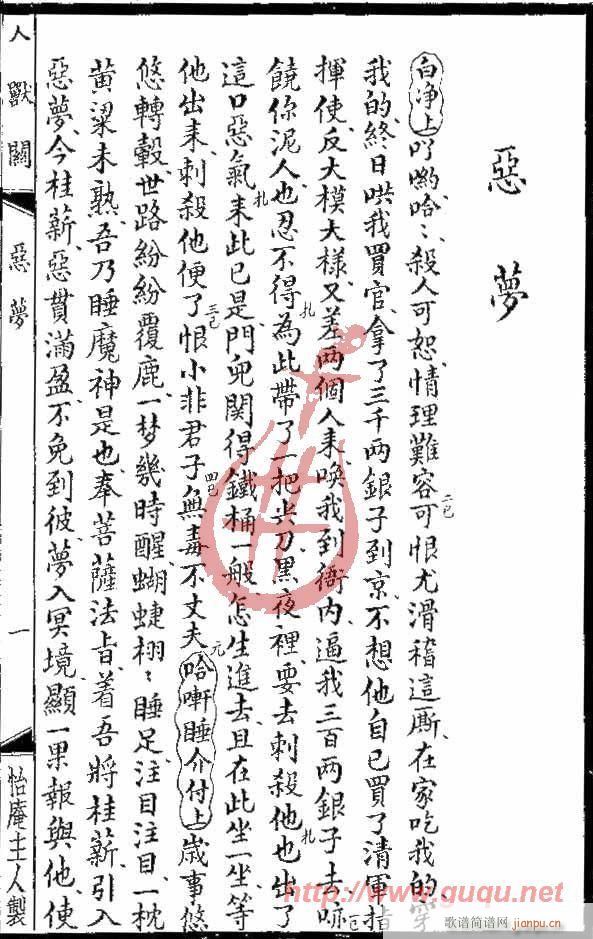 惡夢
白净上吖喲哈〻殺人可恕情理難容可恨尤滑稽這厮在家吃我的穿
我的終日哄我買官拿了三千两銀子到京不想他自已買了清軍指
揮使反大模大樣又差两個人来喚我到衙内逼我三百两銀子去嚇
饒你泥人也忍不得為此帶了一把尖刀黑夜裡要去刺殺他也出了
這口惡氣来此已是門兜関得鐵桶一般怎生進去且在此坐一坐等
他出来刺殺他便了恨小非君子無毒不丈夫哈嘝睡介付上歲事悠
悠轉轂世路紛紛覆鹿一梦幾時醒蝴蜨栩〻睡足注目注目一枕
黄粱未熟吾乃睡魔神是也奉菩薩法旨着吾將桂薪引入
惡夢今桂薪惡貫滿盈不免到彼夢入冥境顯一果報與他使
人獸關
惡夢
一
怡庵主人製
http://www.guqu.net
歌谱简谱网
jianpu.cn